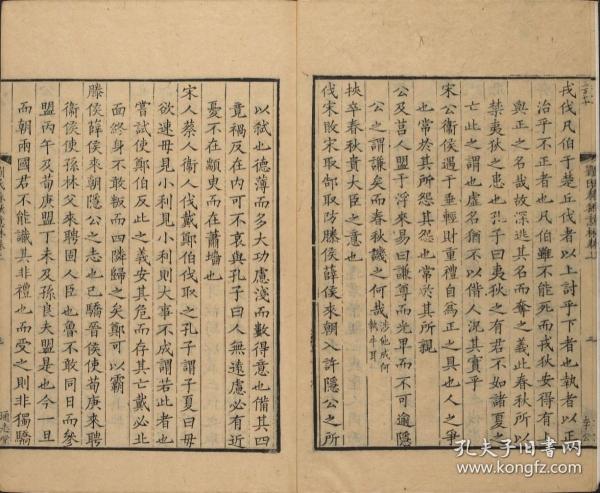 戎伐凡伯于楚丘伐者以上討乎下者也執者以正
治乎不正者也凡伯雖不能死而戎狄安得有
與正之名哉故深逃其名而奪之義此春秋所以
禁夷狄之患也孔子曰夷狄之有君不如諸夏之
亡此之謂也虛名猶不以偕人況其實乎
宋公衞侯遇于垂輕財重禮自為正之具也人之爭
也常於其所怨也常於其所親
公及莒人盟于浮來易曰謙尊而光卑而不可逾隱
公之謂謙矣而春秋譏之何哉涉他成何執牛耳
挾卒春秋貴大臣之意也
伐宋敗宋取郜取防滕侯薛侯來朝入許隱公之所
以弒也德薄而多大功慮淺而數得意也備其四
竟禍反在內可不哀與孔子曰人無遠慮必有近
憂不在顓臾而在蕭墻也
宋人蔡人衞人伐戴鄭伯伐取之孔子謂子夏曰毋
欲速毋見小利見小利則大事不成謂若此者也
嘗試使鄭伯反此之義安其危而存其亡戴必北
面終身不敢叛而四隣歸之矣鄭可以霸
滕侯薛侯來朝隱公之志也已驕晉侯使荀庚來聘
衞侯使孫林父來聘國人臣也魯不敢同日而參
盟丙午及荀庚盟丁未及孫良夫盟是也今一旦
而朝兩國君不能譏其非禮也而受之則非獨驕
通志堂
孔夫子旧书网
www.kongfz.com